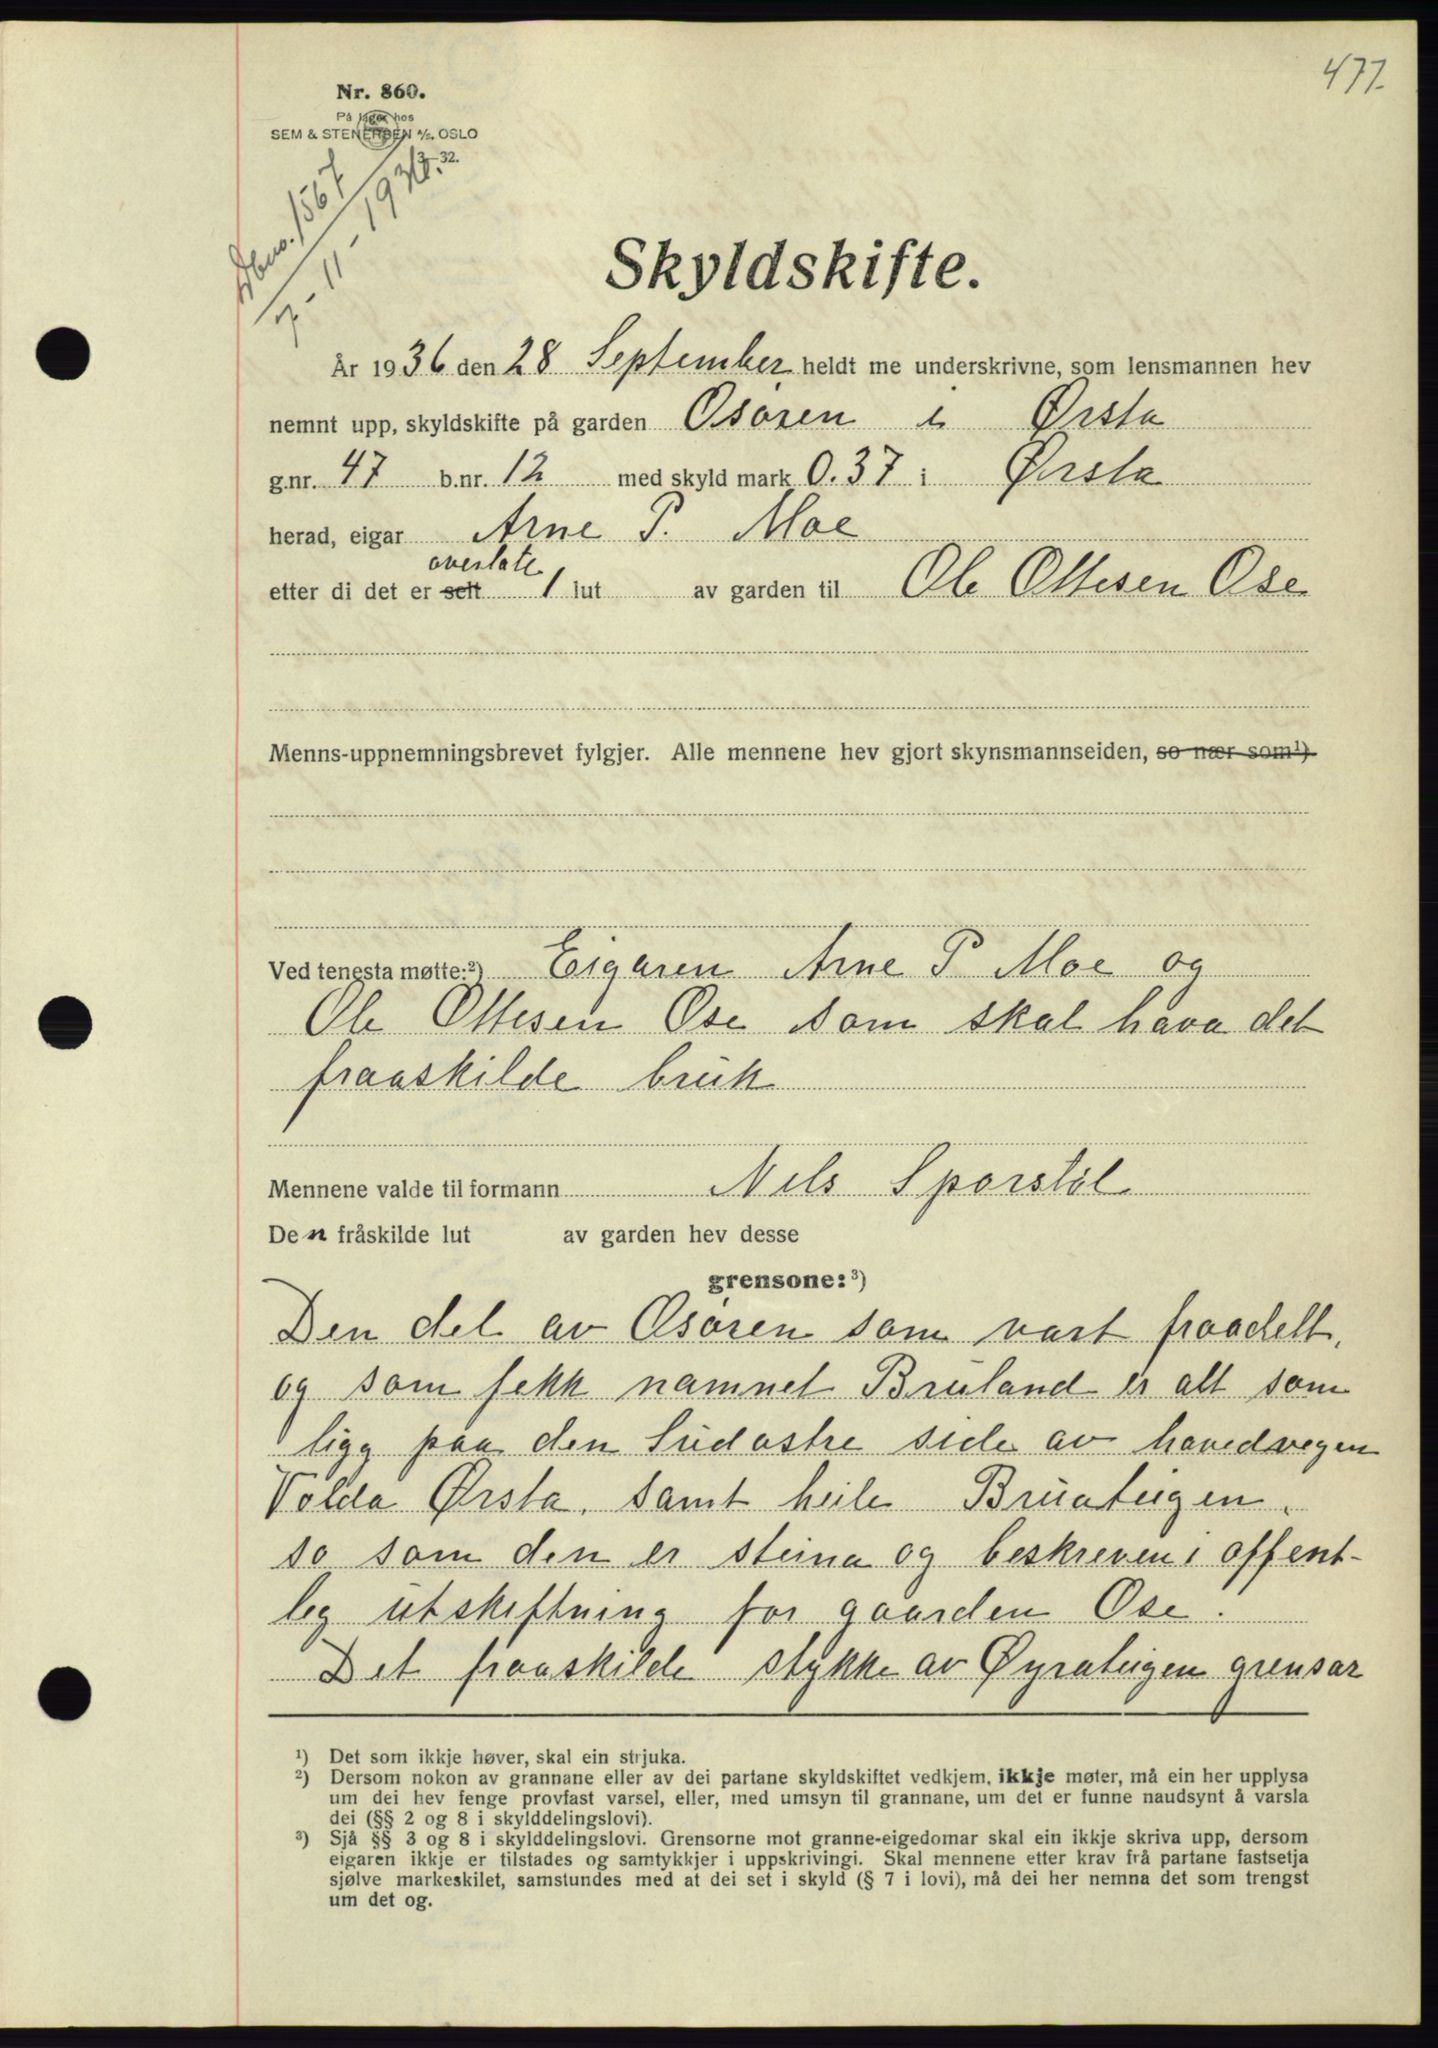 477.
Nr. 860.
På lager hos
SEM & STENERSEN A/S, OSLO
3-32.
Dbno. 1567
7-11-1936.
Skyldskifte.
År 1936 den 28 September heldt me underskrivne, som lensmannen hev
nemnt upp, skyldskifte på garden Osøren i Ørsta
g.nr. 47 b.nr. 12 med skyld mark 0.37 i Ørsta
herad, eigar Arne P. Moe
overlate
etter di det er selt 1 lut av garden til Ole Ottesen Ose
Menns-uppnemningsbrevet fylgjer. Alle mennene hev gjort skynsmannseiden, so nær som¹)
Ved tenesta møtte:²) Eigaren Arne P Moe og
Ole Ottesen Ose som skal hava det
fraaskilde bruk
Mennene valde til formann Nils Sporstøl
Den fråskilde lut av garden hev desse
grensone:³)
Den del av Osøren som vart fraadelt,
og som fekk namnet Bruland er alt som
ligg paa den Sudøstre side av hovedvegen
Volda Ørsta, samt heile Bruateigen,
so som den er steina og beskreven i offent-
leg utskiftning for gaarden Ose.
Det fraaskilde stykke av Øyrateigen grensar
¹) Det som ikkje høver, skal ein strjuka.
²) Dersom nokon av grannane eller av dei partane skyldskiftet vedkjem, ikkje møter, må ein her upplysa
um dei hev fenge provfast varsel, eller, med umsyn til grannane, um det er funne naudsynt å varsla
dei (§§ 2 og 8 i skylddelingslovi).
³) Sjå §§ 3 og 8 i skylddelingslovi. Grensorne mot granne-eigedomar skal ein ikkje skriva upp, dersom
eigaren ikkje er tilstades og samtykkjer i uppskrivingi. Skal mennene etter krav frå partane fastsetja
sjølve markeskilet, samstundes med at dei set i skyld (§ 7 i lovi), må dei her nemna det som trengst
um det og.